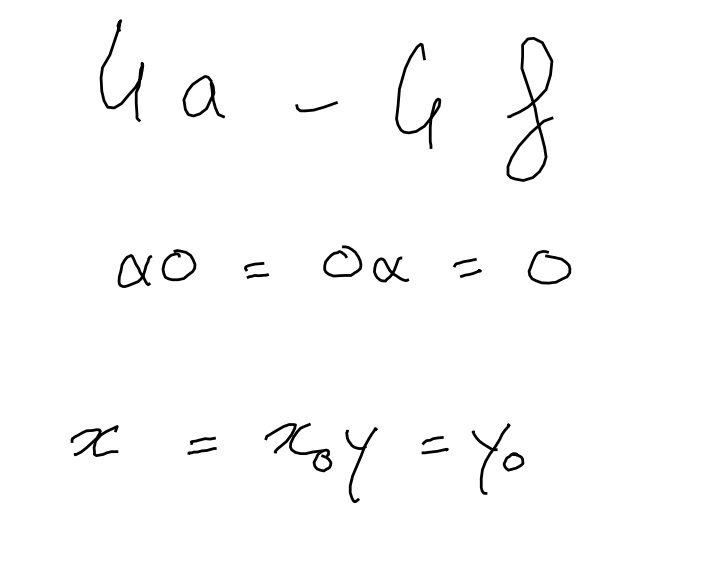 4a - 4f
α0 = 0α = 0
x = x₀y = y₀